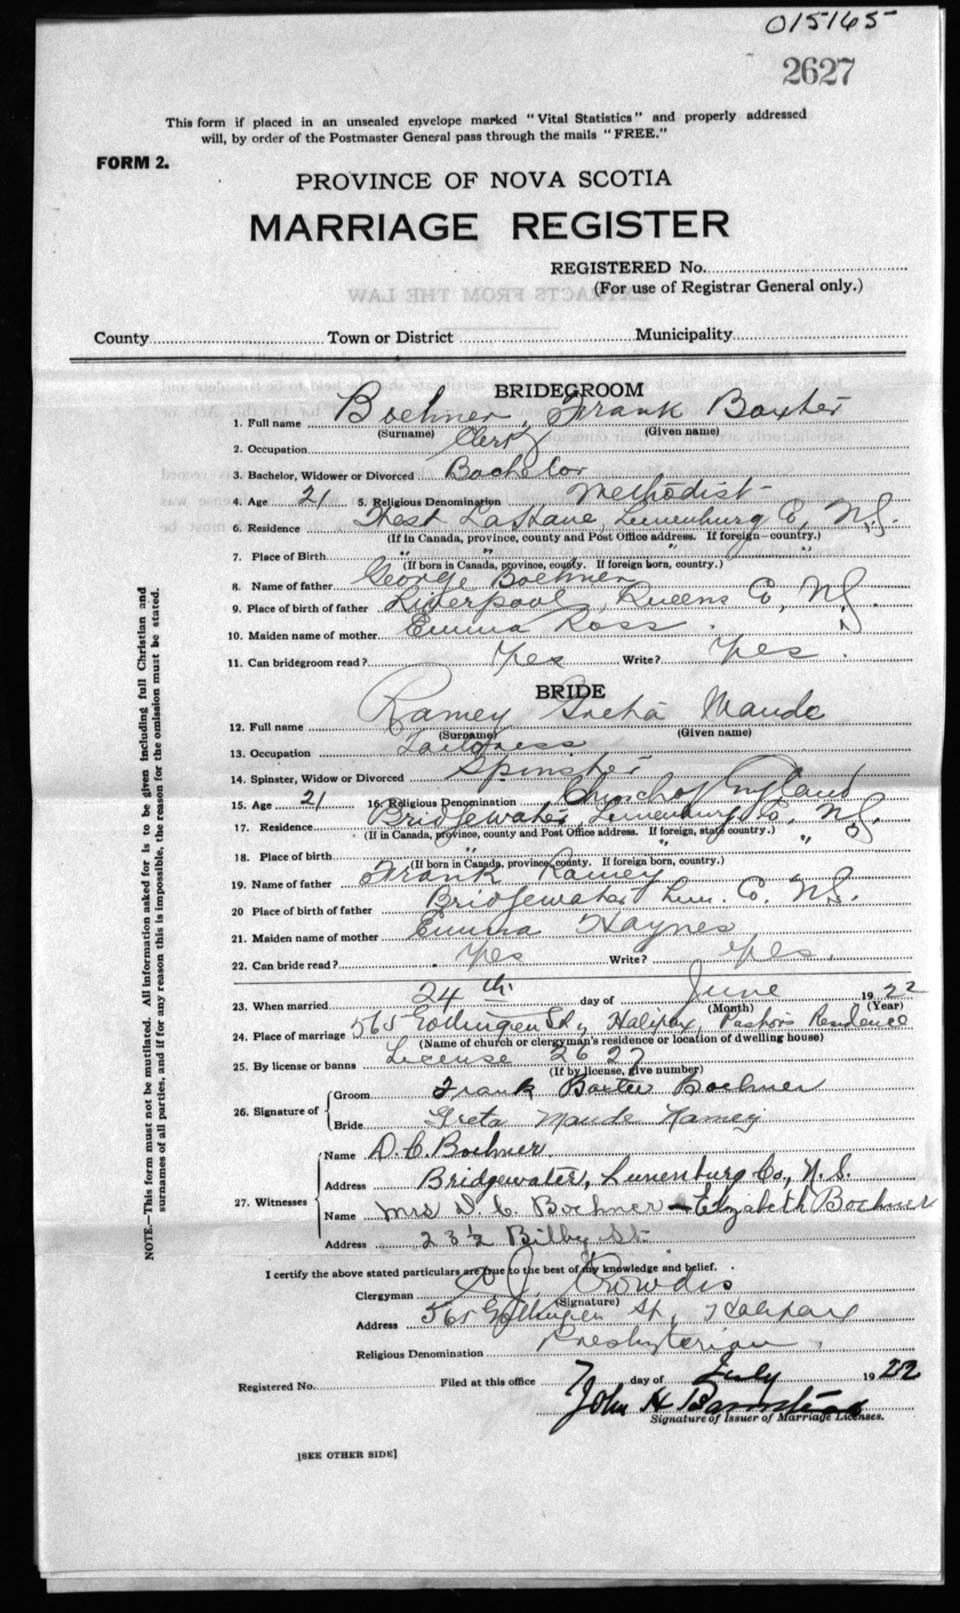 015165
2627
This form if placed in an unsealed envelope marked "Vital Statistics" and properly addressed
will, by order of the Postmaster General pass through the mails "FREE."
FORM 2.
PROVINCE OF NOVA SCOTIA
MARRIAGE REGISTER
REGISTERED No.
(For use of Registrar General only.)
EXTRACTS FROM THE LAW
County Town or District Municipality
BRIDEGROOM
1. Full name Boehner, Frank Baxter
(Surname) (Given name)
2. Occupation Clerk
3. Bachelor, Widower or Divorced Bachelor
4. Age 21 5. Religious Denomination Methodist
6. Residence West LaHave, Lunenburg Co, N.S.
(If in Canada, province, county and Post Office address. If foreign—country.)
7. Place of Birth " " " "
(If born in Canada, province, county. If foreign born, country.)
8. Name of father George Boehner
9. Place of birth of father Liverpool, Queens Co, N.S.
10. Maiden name of mother Emma Ross.
11. Can bridegroom read? Yes Write? Yes.
BRIDE
12. Full name Ramey Greta Maude
(Surname) (Given name)
13. Occupation Tailoress
14. Spinster, Widow or Divorced Spinster
15. Age 21 16. Religious Denomination Church of England
17. Residence Bridgewater, Lunenburg Co, N.S.
(If in Canada, province, county and Post Office address. If foreign, state country.)
18. Place of birth " "
(If born in Canada, province, county. If foreign born, country.)
19. Name of father Frank Ramey
20 Place of birth of father Bridgewater Lun. Co, N.S.
21. Maiden name of mother Emma Haynes
22. Can bride read? Yes Write? Yes.
23. When married 24th day of June 1922
(Month) (Year)
24. Place of marriage 565 Gottingen St, Halifax, Pastor's Residence
(Name of church or clergyman's residence or location of dwelling house)
25. By license or banns License 2627
(If by license, give number)
26. Signature of Groom Frank Baxter Boehner
Bride Greta Maude Ramey
27. Witnesses Name D. C. Boehner.
Address Bridgewater, Lunenburg Co., N. S.
Name Mrs D. C. Boehner - Elizabeth Boehner
Address 23½ Bilby St.
I certify the above stated particulars are true to the best of my knowledge and belief.
Clergyman Crowdis
(Signature)
Address 565 Gottingen St, Halifax
Religious Denomination Presbyterian.
Registered No. Filed at this office 7 day of July 1922
John H Barnstead
Signature of Issuer of Marriage Licenses.
[SEE OTHER SIDE]
NOTE.—This form must not be mutilated. All information asked for is to be given including full Christian and
surnames of all parties, and if for any reason this is impossible, the reason for the omission must be stated.